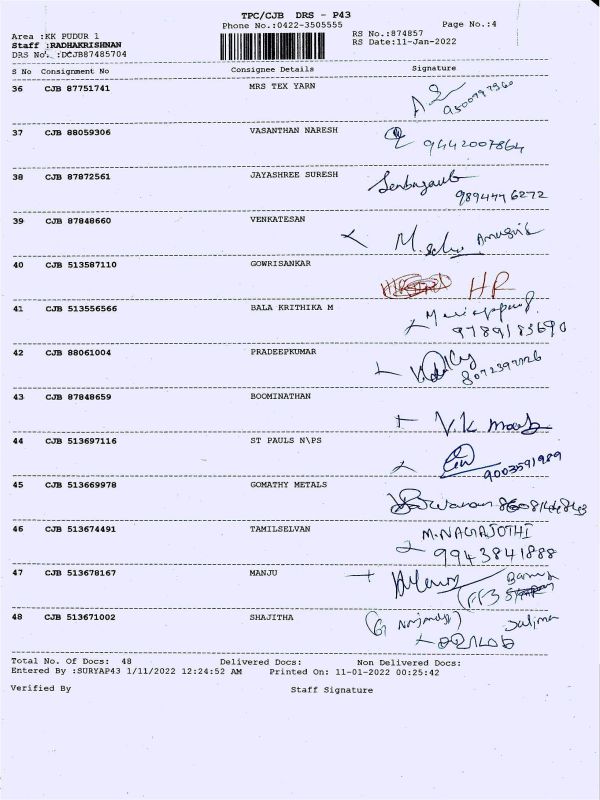 TPC/CJB DRS - P43
Phone No.:0422-3505555 Page No.:4
Area :KK PUDUR 1 RS No.:874857
Staff :RADHAKRISHNAN RS Date:11-Jan-2022
DRS No. :DCJB87485704
S No Consignment No Consignee Details Signature
36 CJB 87751741 MRS TEX YARN
37 CJB 88059306 VASANTHAN NARESH
9442007864
38 CJB 87872561 JAYASHREE SURESH
9894476272
39 CJB 87848660 VENKATESAN
40 CJB 513587110 GOWRISANKAR
HR
41 CJB 513556566 BALA KRITHIKA M
9789183690
42 CJB 88061004 PRADEEPKUMAR
43 CJB 87848659 BOOMINATHAN
V.K
44 CJB 513697116 ST PAULS N\PS
9003591989
45 CJB 513669978 GOMATHY METALS
46 CJB 513674491 TAMILSELVAN
M.NAGAJOTHI
9943841888
47 CJB 513678167 MANJU
48 CJB 513671002 SHAJITHA
Total No. Of Docs: 48 Delivered Docs: Non Delivered Docs:
Entered By :SURYAP43 1/11/2022 12:24:52 AM Printed On: 11-01-2022 00:25:42
Verified By Staff Signature